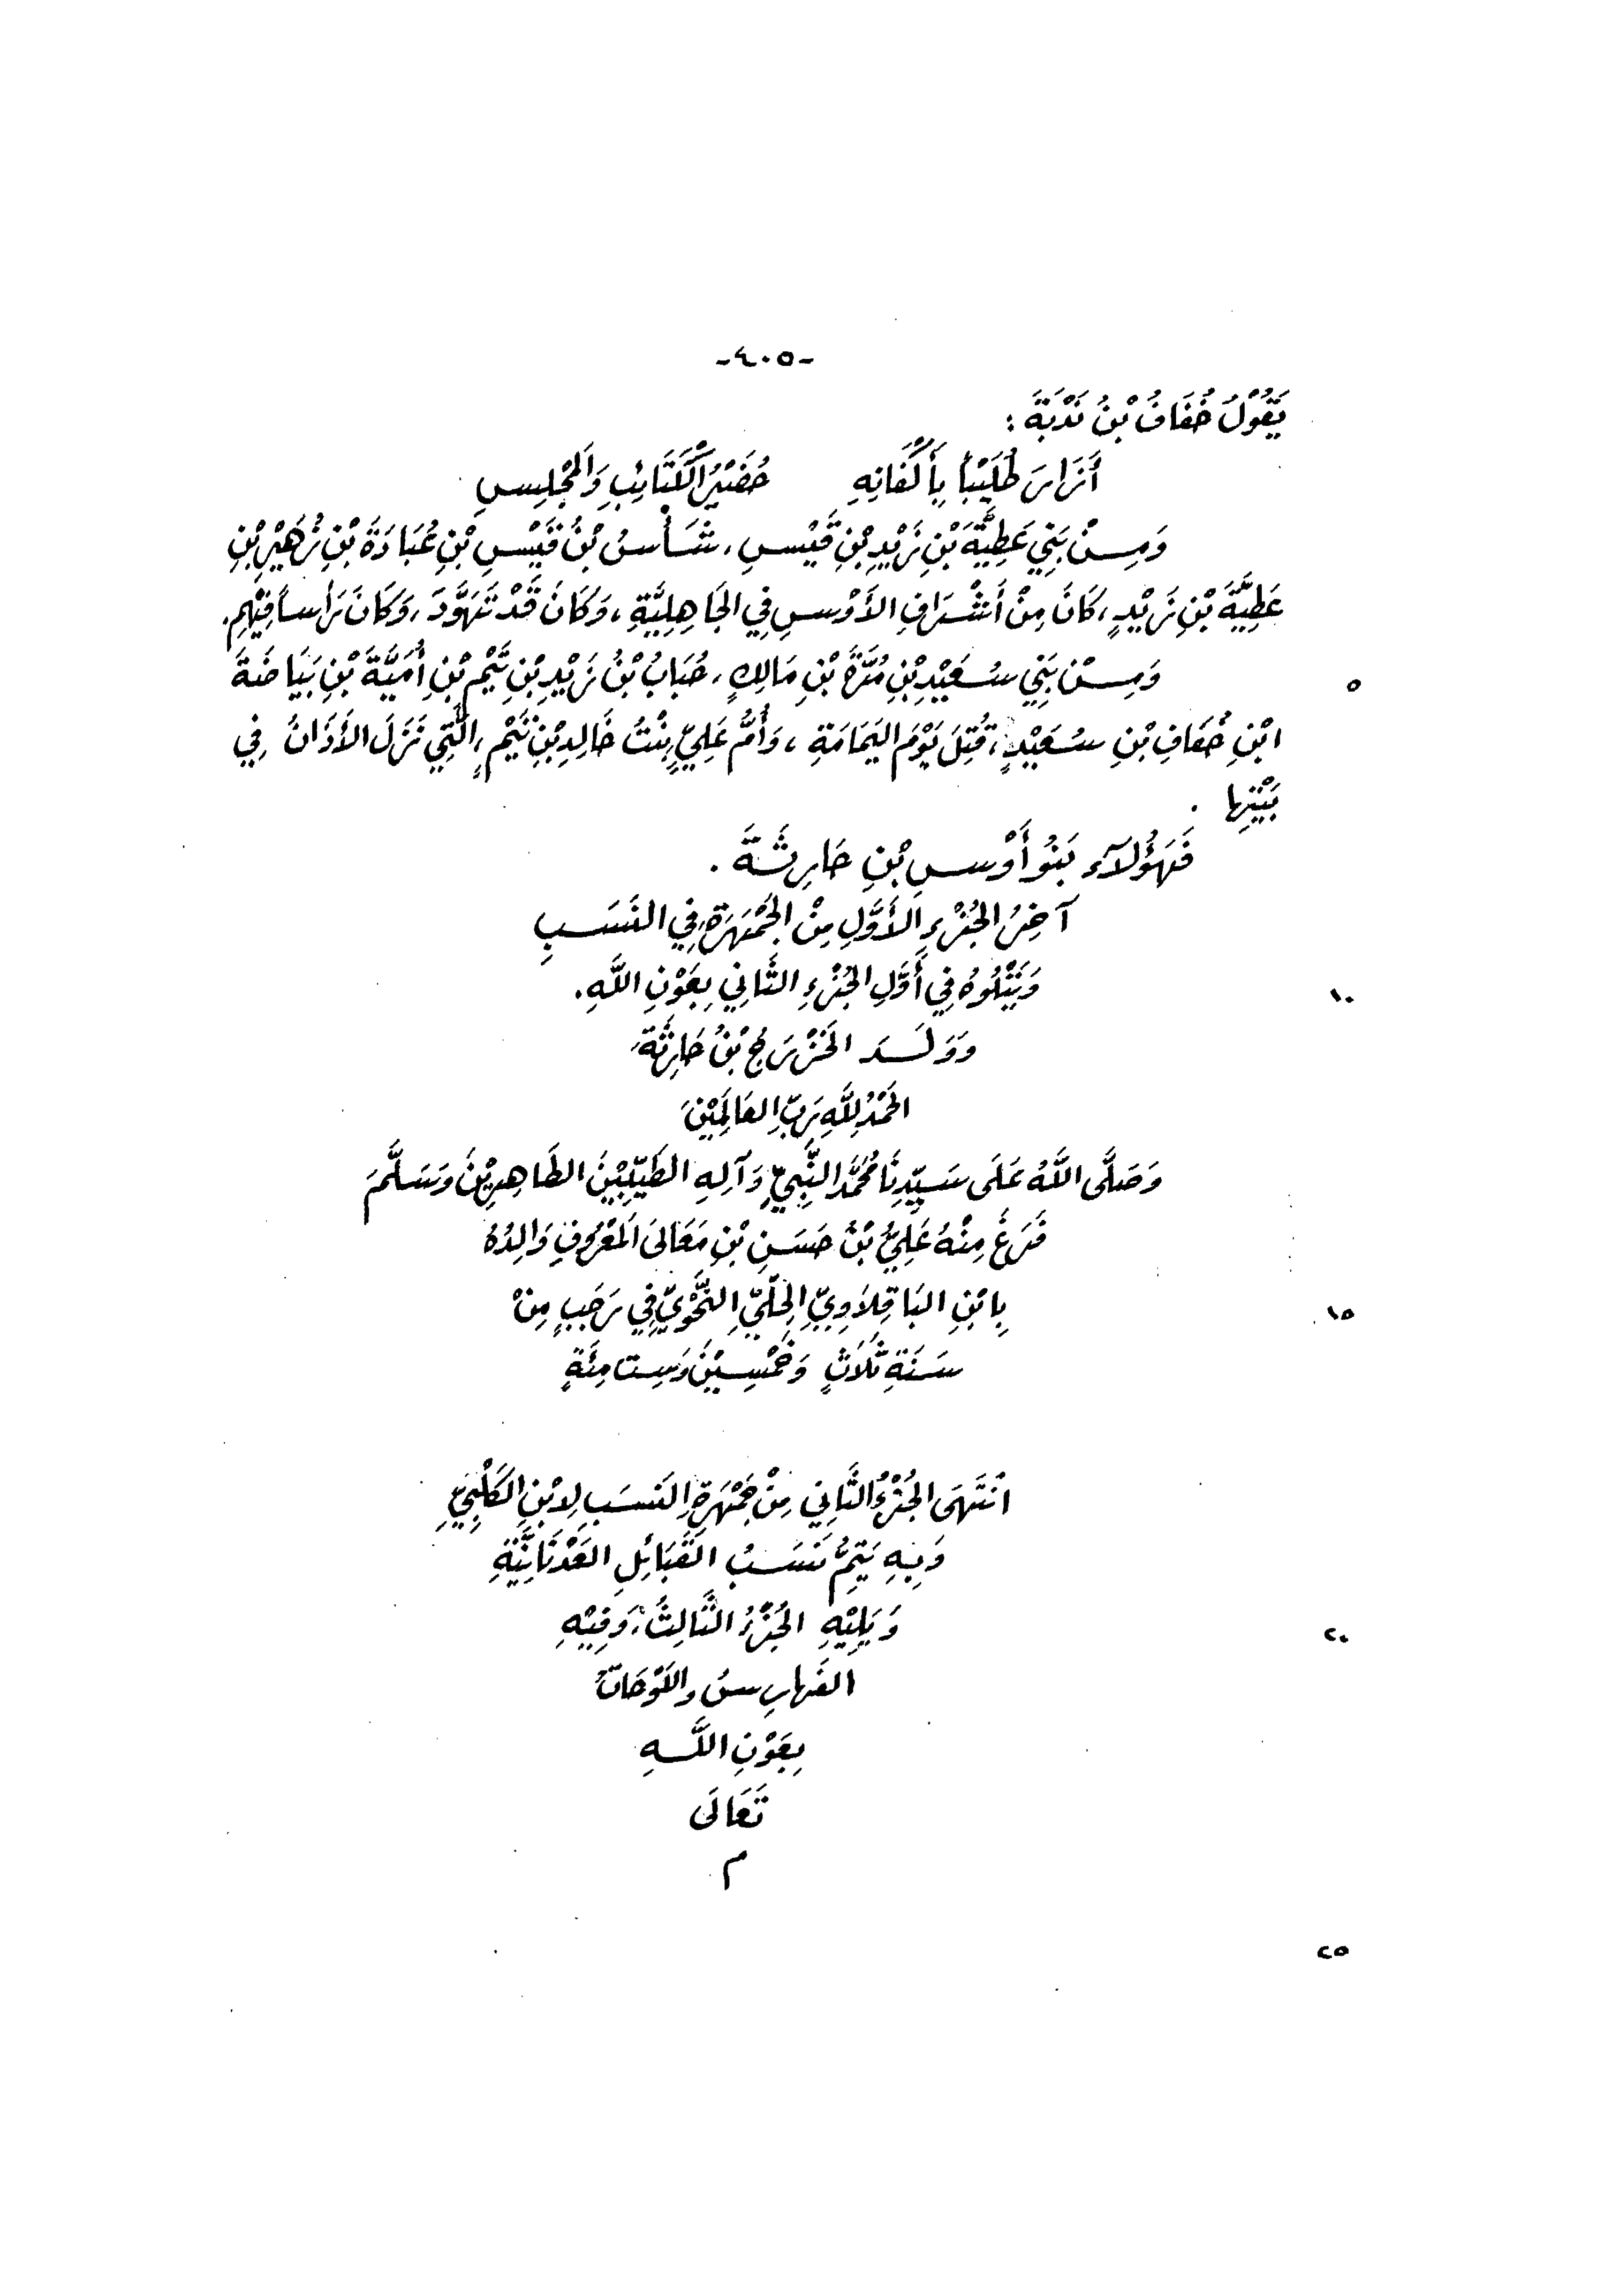 -٤٠٥-
يَقُوْلُ خُفَافُ بْنُ نَدْبَةَ :
أَنَارَ طُلَيْباً بِأَكْفَانِهِ    حُضَيْرُ الكَتَائِبِ وَالمَجْلِسِ
وَمِنْ بَنِي عَطِيَّةَ بْنِ زَيْدِ بْنِ قَيْسٍ ، شَأْسُ بْنُ قَيْسِ بْنِ عُبَادَةَ بْنِ زُهَيْرِ بْنِ
عَطِيَّةَ بْنِ زَيْدٍ ، كَانَ مِنْ أَشْرَافِ الأَوْسِ فِي الجَاهِلِيَّةِ ، وَكَانَ قَدْ تَهَوَّدَ ، وَكَانَ رَأْساً فِيْهِم .
وَمِنْ بَنِي سُعَيْدِ بْنِ مُرَّةَ بْنِ مَالِكٍ ، حُبَابُ بْنُ زَيْدِ بْنِ تَيْمِ بْنِ أُمَيَّةَ بْنِ بَيَاضَةَ
٥
ابْنِ خُفَافِ بْنِ سُعَيْدٍ ، قُتِلَ يَوْمَ اليَمَامَةِ ، وَأُمُّ عَلِيٍّ بِنْتُ خَالِدِ بْنِ تَيْمٍ ، الَّتِي نَزَلَ الأَذَانُ فِي
بَيْتِهَا .
فَهَؤُلَآءِ بَنُو أَوْسِ بْنِ حَارِثَةَ .
آخِرُ الجُزْءِ الأَوَّلِ مِنْ الجَمْهَرَةِ فِي النَّسَبِ
وَيَتْلُوهُ فِي أَوَّلِ الجُزْءِ الثَّانِي بِعَوْنِ اللَّهِ .
١٠
وَوَلَدَ الخَزْرَجُ بْنُ حَارِثَةَ
الحَمْدُ لِلَّهِ رَبِّ العَالَمِيْنَ
وَصَلَّى اللَّهُ عَلَى سَيِّدِنَا مُحَمَّدٍ النَّبِيِّ وَآلِهِ الطَيِّبِيْنَ الطَاهِرِيْنَ وَسَلَّمَ
فَرَغَ مِنْهُ عَلِيُّ بْنُ حَسَنِ بْنِ مَعَالَى المَعْرُوفِ وَالِدُهُ
بِابْنِ البَاقِلَاوِيِّ الحِلِّيِّ النَّحْوِيِّ فِي رَجَبٍ مِنْ
١٥
سَنَةِ ثَلَاثٍ وَخَمْسِيْنَ وَسِتَ مِئَةٍ
انْتَهَى الجُزْءُ الثَّانِي مِنْ جَمْهَرَةِ النَسَبِ لِابْنِ الكَلْبِيِّ
وَبِهِ يَتِمُّ نَسَبُ القَبَائِلِ العَدْنَانِيَّةِ
وَيَلِيْهِ الجُزْءُ الثَّالِثُ ، وَفِيْهِ
٢٠
الفَهارِسُ واللَوْحَاتُ
بِعَوْنِ اللَّهِ
تَعَالَى
م
٢٥